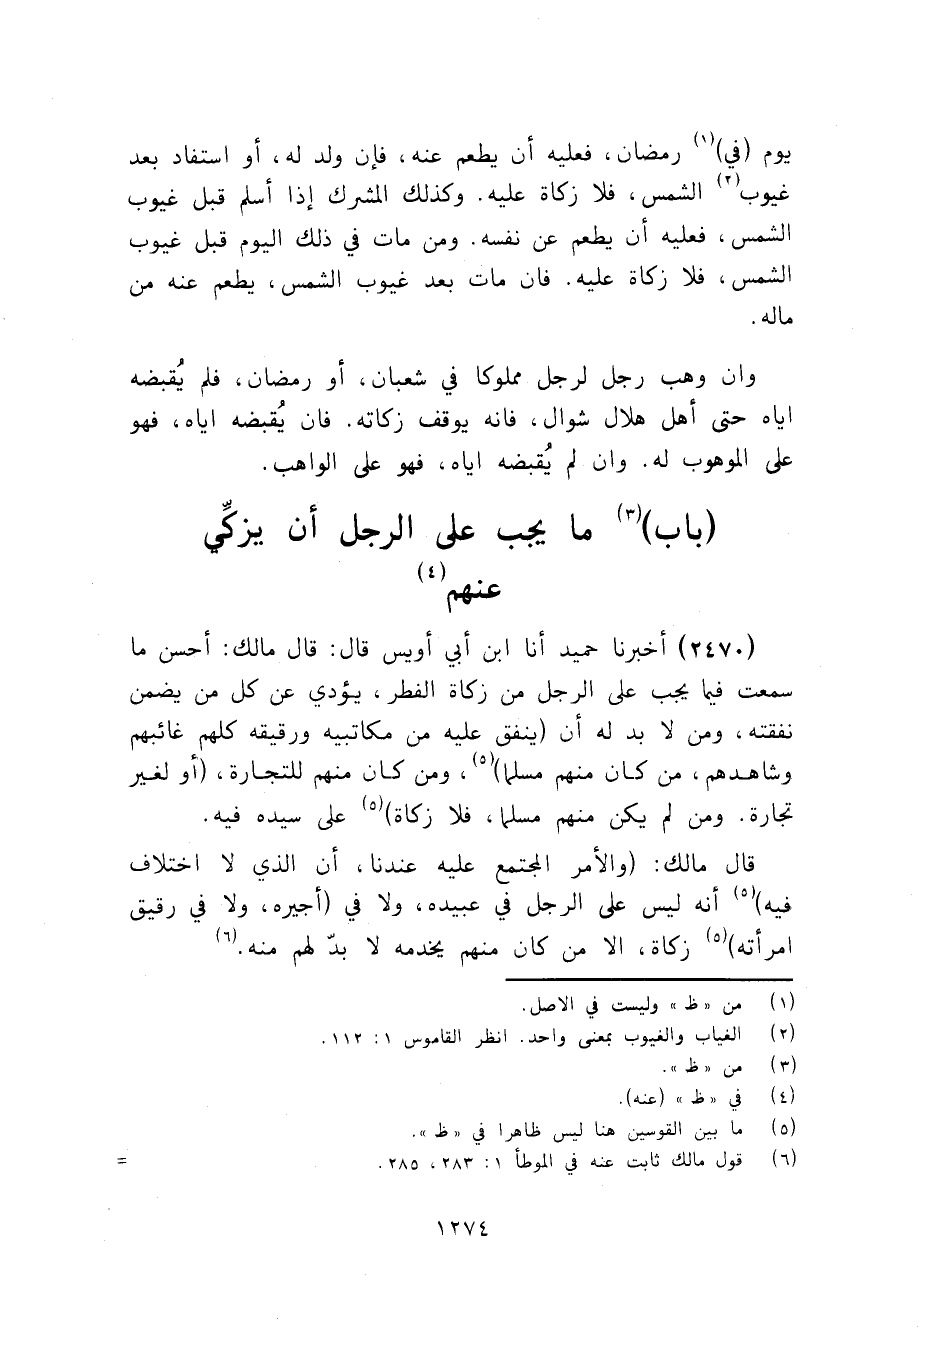 يوم (في)(١) رمضان، فعليه أن يطعم عنه، فإن ولد له، أو استفاد بعد
غيوب(٢) الشمس، فلا زكاة عليه. وكذلك المشرك إذا أسلم قبل غيوب
الشمس، فعليه أن يطعم عن نفسه. ومن مات في ذلك اليوم قبل غيوب
الشمس، فلا زكاة عليه. فان مات بعد غيوب الشمس، يطعم عنه من
ماله.
وان وهب رجل لرجل مملوكا في شعبان، أو رمضان، فلم يُقبضه
اياه حتى أهل هلال شوال، فانه يوقف زكاته. فان يُقبضه اياه، فهو
على الموهوب له. وان لم يُقبضه اياه، فهو على الواهب.
(باب)(٣) ما يجب على الرجل أن يزكِّي
عنهم(٤)
(٢٤٧٠) أخبرنا حميد أنا ابن أبي أويس قال: قال مالك: أحسن ما
سمعت فيما يجب على الرجل من زكاة الفطر، يؤدي عن كل من يضمن
نفقته، ومن لا بد له أن (ينفق عليه من مكاتبيه ورقيقه كلهم غائبهم
وشاهدهم، من كان منهم مسلما)(٥)، ومن كان منهم للتجارة، (أو لغير
تجارة. ومن لم يكن منهم مسلما، فلا زكاة)(٥) على سيده فيه.
قال مالك: (والأمر المجتمع عليه عندنا، أن الذي لا اختلاف
فيه)(٥) أنه ليس على الرجل في عبيده، ولا في (أجيره، ولا في رقيق
امرأته)(٥) زكاة، الا من كان منهم يخدمه لا بدّ لهم منه.(٦)
(١) من «ظ» وليست في الاصل.
(٢) الغياب والغيوب بمعنى واحد. انظر القاموس ١: ١١٢.
(٣) من «ظ».
(٤) في «ظ» (عنه).
(٥) ما بين القوسين هنا ليس ظاهرا في «ظ».
(٦) قول مالك ثابت عنه في الموطأ ١: ٢٨٣، ٢٨٥. =
١٢٧٤